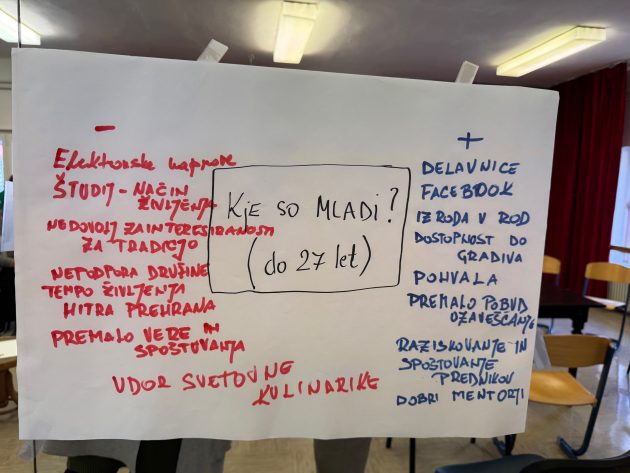 -
Elektronske naprave
ŠTUDIJ - NAČIN
ŽIVLJENJA
NEDOVOLJ ZAINTERESIRANOSTI
ZA TRADICIJO
NEPODPORA DRUŽINE
TEMPO ŽIVLJENJA
HITRA PREHRANA
PREMALO VERE IN
SPOŠTOVANJA
UDOR SVETOVNE
KULINARIKE
KJE SO MLADI?
(do 27 let)
+
DELAVNICE
FACEBOOK
IZ RODA V ROD
DOSTOPNOST DO
GRADIVA
POHVALA
PREMALO POBUD
OZAVEŠČANJE
RAZISKOVANJE IN
SPOŠTOVANJE
PREDNIKOV
DOBRI MENTORJI